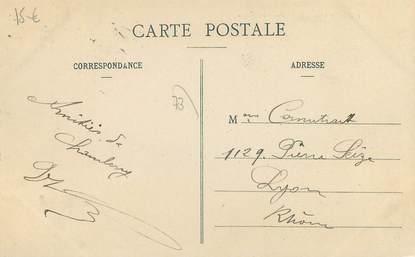 15 €
CARTE POSTALE
CORRESPONDANCE
ADRESSE
73
Amitiés de
Chambéry
M
1129, Pierre Scize
Lyon
Rhône